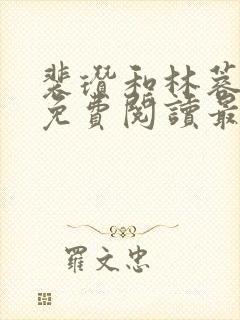 裴瓚和林蓉
免費閱讀最
羅文忠